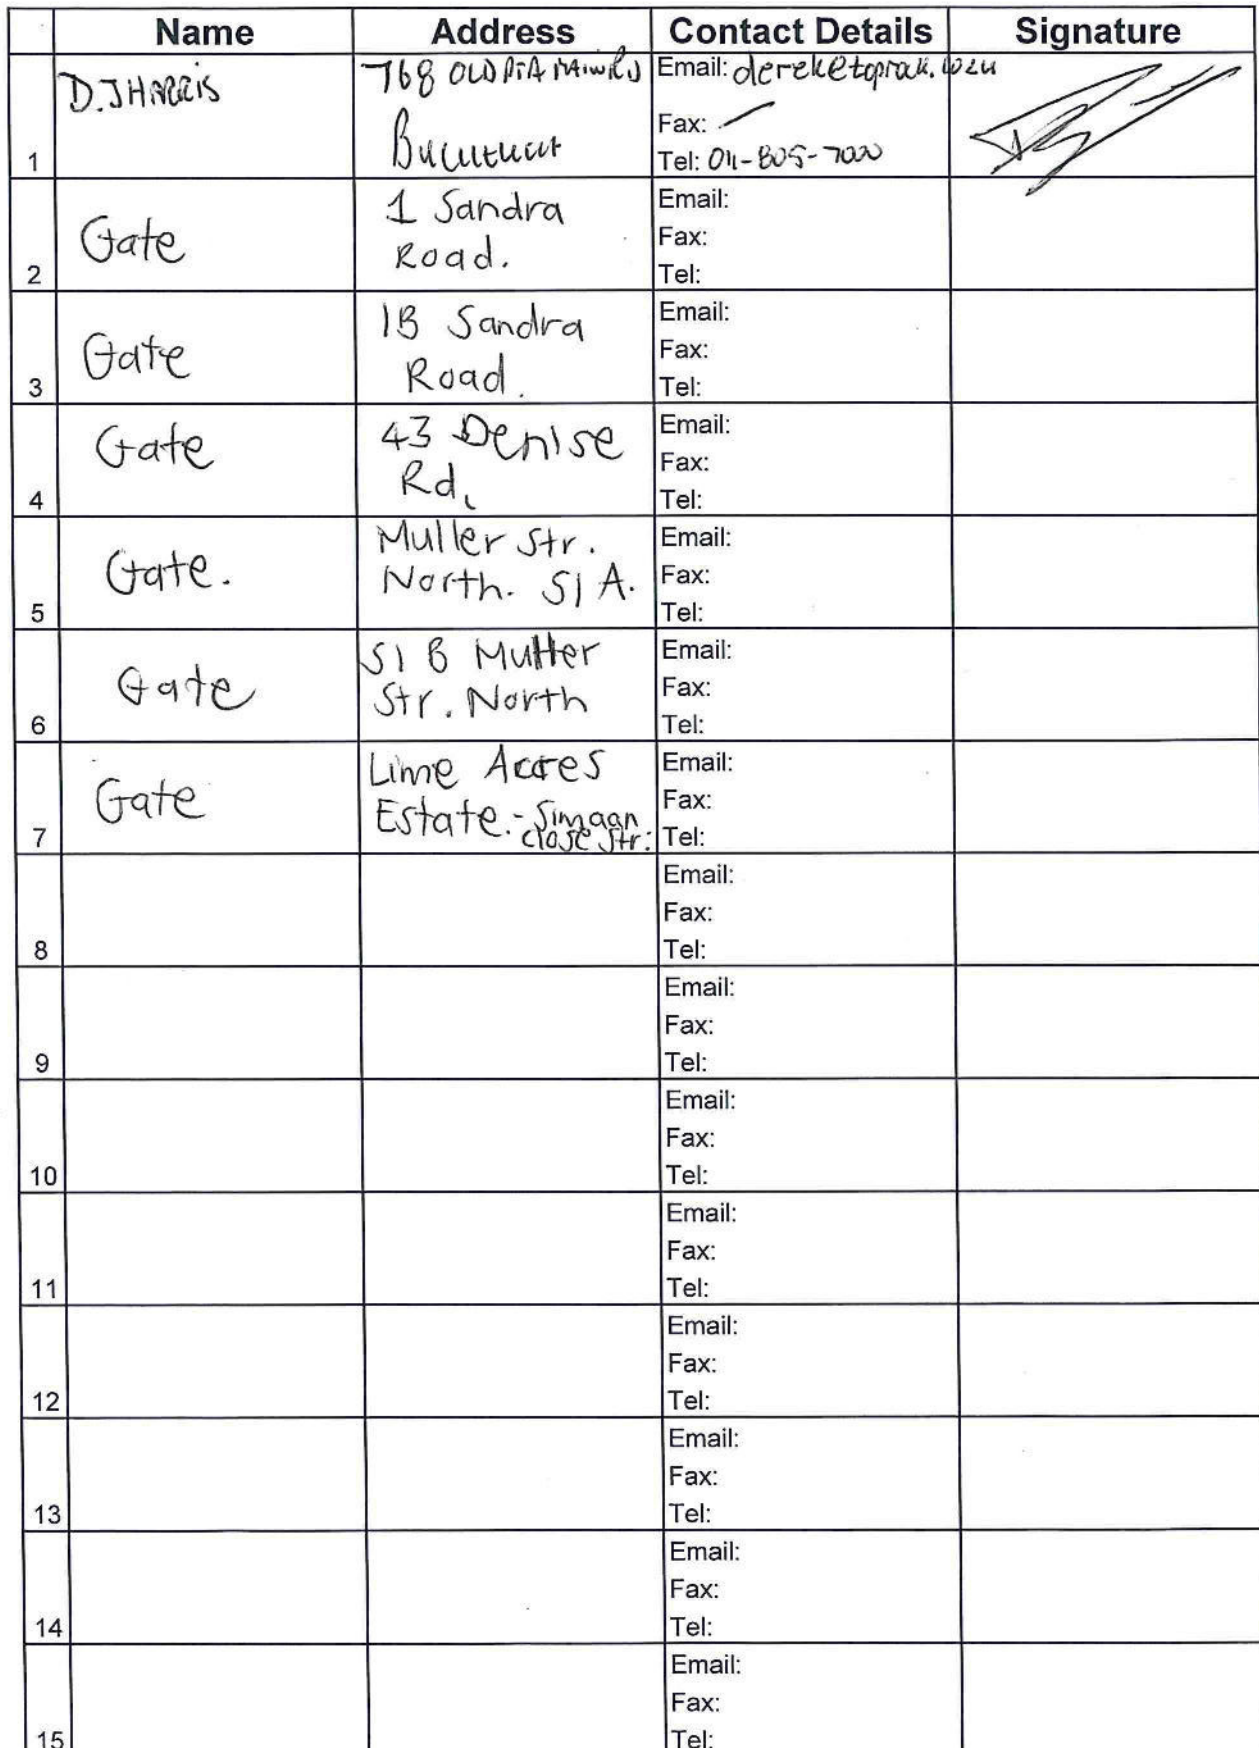 Name Address Contact Details Signature
1 D.J HARRIS 768 OLD PTA MAIN RD Email:
Fax:
Tel: 011-805-7000
2 Gate 1 Sandra
Road.
Email:
Fax:
Tel:
3 Gate 1B Sandra
Road.
Email:
Fax:
Tel:
4 Gate 43 Denise
Rd,
Email:
Fax:
Tel:
5 Gate. Muller Str.
North. 51 A.
Email:
Fax:
Tel:
6 Gate 51 B Muller
Str. North
Email:
Fax:
Tel:
7 Gate Lime Acres
Estate.- Simaan
close Str.
Email:
Fax:
Tel:
8 Email:
Fax:
Tel:
9 Email:
Fax:
Tel:
10 Email:
Fax:
Tel:
11 Email:
Fax:
Tel:
12 Email:
Fax:
Tel:
13 Email:
Fax:
Tel:
14 Email:
Fax:
Tel:
15 Email:
Fax:
Tel: